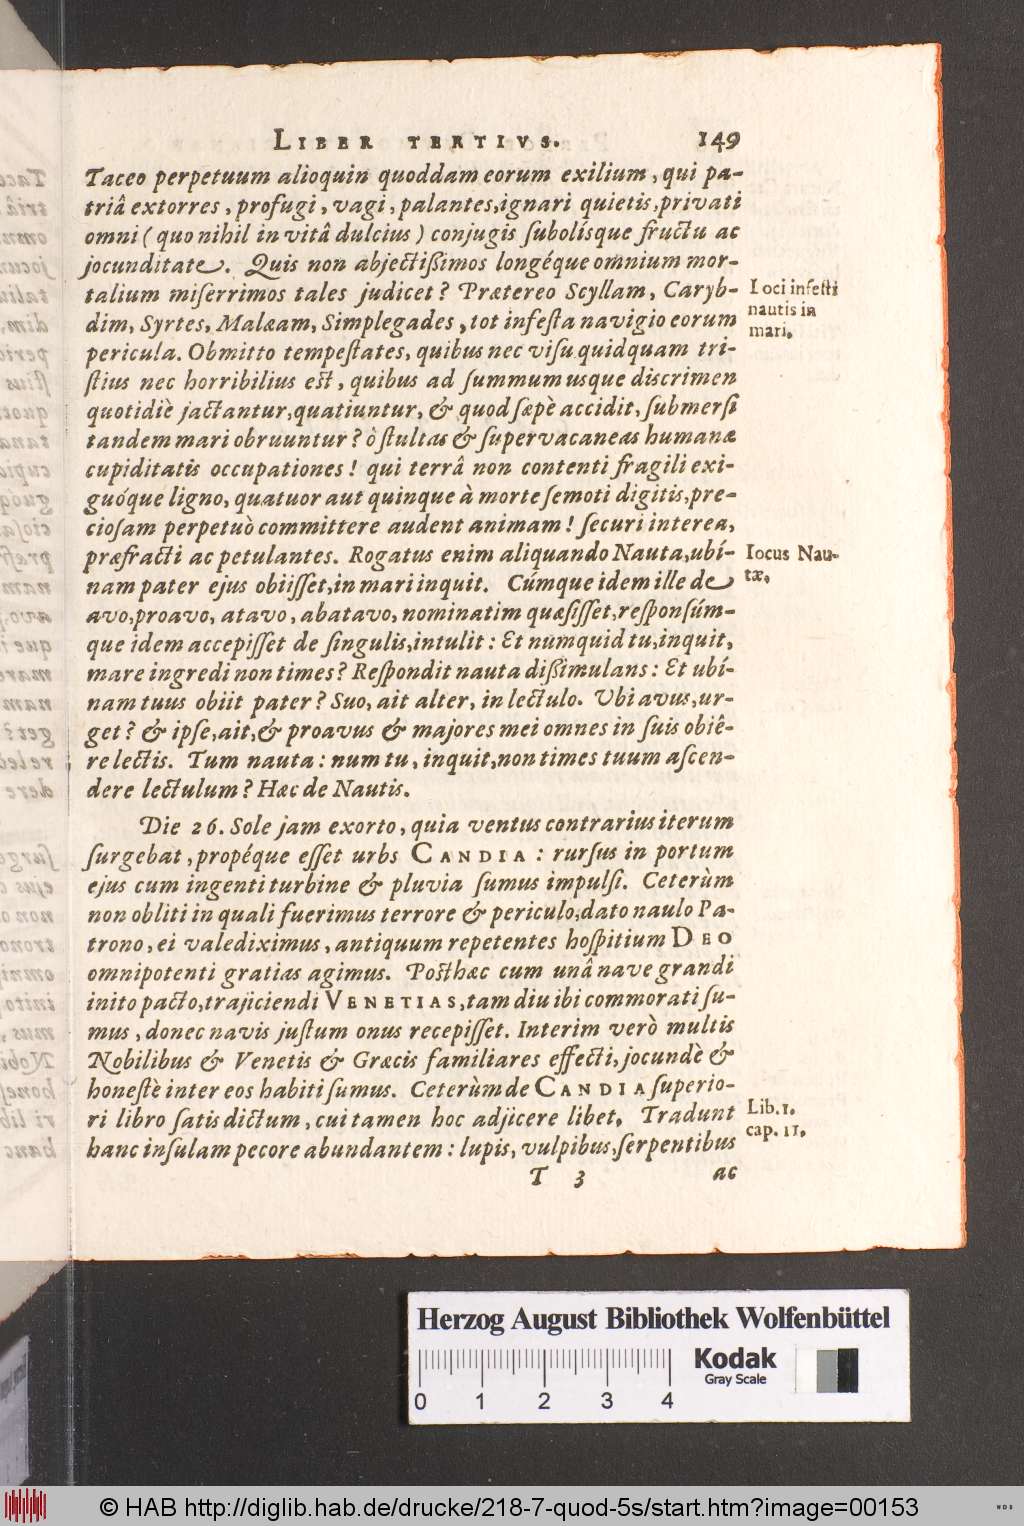 LIBER TERTIVS. 149
Taceo perpetuum alioquin quoddam eorum exilium, qui pa-
triâ extorres, profugi, vagi, palantes, ignari quietis, privati
omni (quo nihil in vitâ dulcius) conjugis ſubolísque fructu ac
jocunditate. Quis non abjectißimos longéque omnium mor-
talium miſerrimos tales judicet? Prætereo Scyllam, Caryb-
dim, Syrtes, Malæam, Simplegades, tot infeſta navigio eorum
pericula. Obmitto tempeſtates, quibus nec viſu quidquam tri-
ſtius nec horribilius eſt, quibus ad ſummum usque discrimen
quotidiè jactantur, quatiuntur, & quod ſæpè accidit, ſubmerſi
tandem mari obruuntur? ò ſtultas & ſupervacaneas humanæ
cupiditatis occupationes! qui terrâ non contenti fragili exi-
guóque ligno, quatuor aut quinque à morte ſemoti digitis, pre-
cioſam perpetuò committere audent animam! ſecuri interea,
præfracti ac petulantes. Rogatus enim aliquando Nauta, ubí-
nam pater ejus obiiſſet, in mari inquit. Cúmque idem ille de
avo, proavo, atavo, abatavo, nominatim quæſiſſet, reſponſúm-
que idem accepiſſet de ſingulis, intulit: Et numquid tu, inquit,
mare ingredi non times? Reſpondit nauta dißimulans: Et ubí-
nam tuus obiit pater? Suo, ait alter, in lectulo. Vbi avus, ur-
get? & ipſe, ait, & proavus & majores mei omnes in ſuis obiê-
re lectis. Tum nauta: num tu, inquit, non times tuum aſcen-
dere lectulum? Hæc de Nautis.
Die 26. Sole jam exorto, quia ventus contrarius iterum
ſurgebat, propéque eſſet urbs CANDIA: rurſus in portum
ejus cum ingenti turbine & pluvia ſumus impulſi. Ceterùm
non obliti in quali fuerimus terrore & periculo, dato naulo Pa-
trono, ei valediximus, antiquum repetentes hoſpitium DEO
omnipotenti gratias agimus. Poſthæc cum unâ nave grandi
inito pacto, trajiciendi VENETIAS, tam diu ibi commorati ſu-
mus, donec navis juſtum onus recepiſſet. Interim verò multis
Nobilibus & Venetis & Græcis familiares effecti, jocundè &
honeſtè inter eos habiti ſumus. Ceterùm de CANDIA ſuperio-
ri libro ſatis dictum, cui tamen hoc adjicere libet. Tradunt
hanc inſulam pecore abundantem: lupis, vulpibus, ſerpentibus
T 3 ac
Loci infeſti
nautis in
mari.
Iocus Nau-
tæ.
Lib. 1.
cap. 11.
Herzog August Bibliothek Wolfenbüttel
0 1 2 3 4
Kodak
Gray Scale
© HAB http://diglib.hab.de/drucke/218-7-quod-5s/start.htm?image=00153
WDB